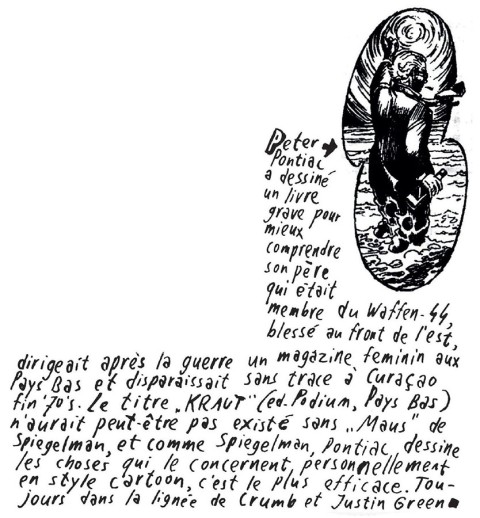 Peter →
Pontiac
a dessiné
un livre
grave pour
mieux
comprendre
son père
qui était
membre du Waffen-SS,
blessé au front de l'est,
dirigeait après la guerre un magazine feminin aux
Pays Bas et disparaissait sans trace à Curaçao
fin '70's. Le titre „KRAUT" (ed. Podium, Pays Bas)
n'aurait peut-être pas existé sans „Maus" de
Spiegelman, et comme Spiegelman, Pontiac dessine
les choses qui le concernent, personnellement
en style cartoon, c'est le plus efficace. Tou-
jours dans la lignée de Crumb et Justin Green